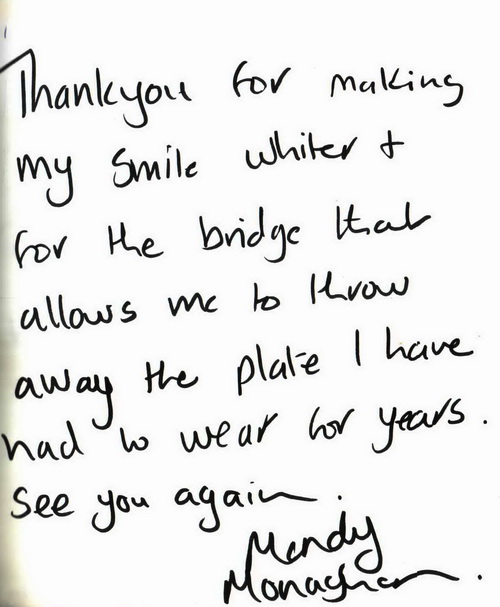 Thankyou for making
my smile whiter +
for the bridge that
allows me to throw
away the plate I have
had to wear for years.
See you again.
Mandy
Monaghan.